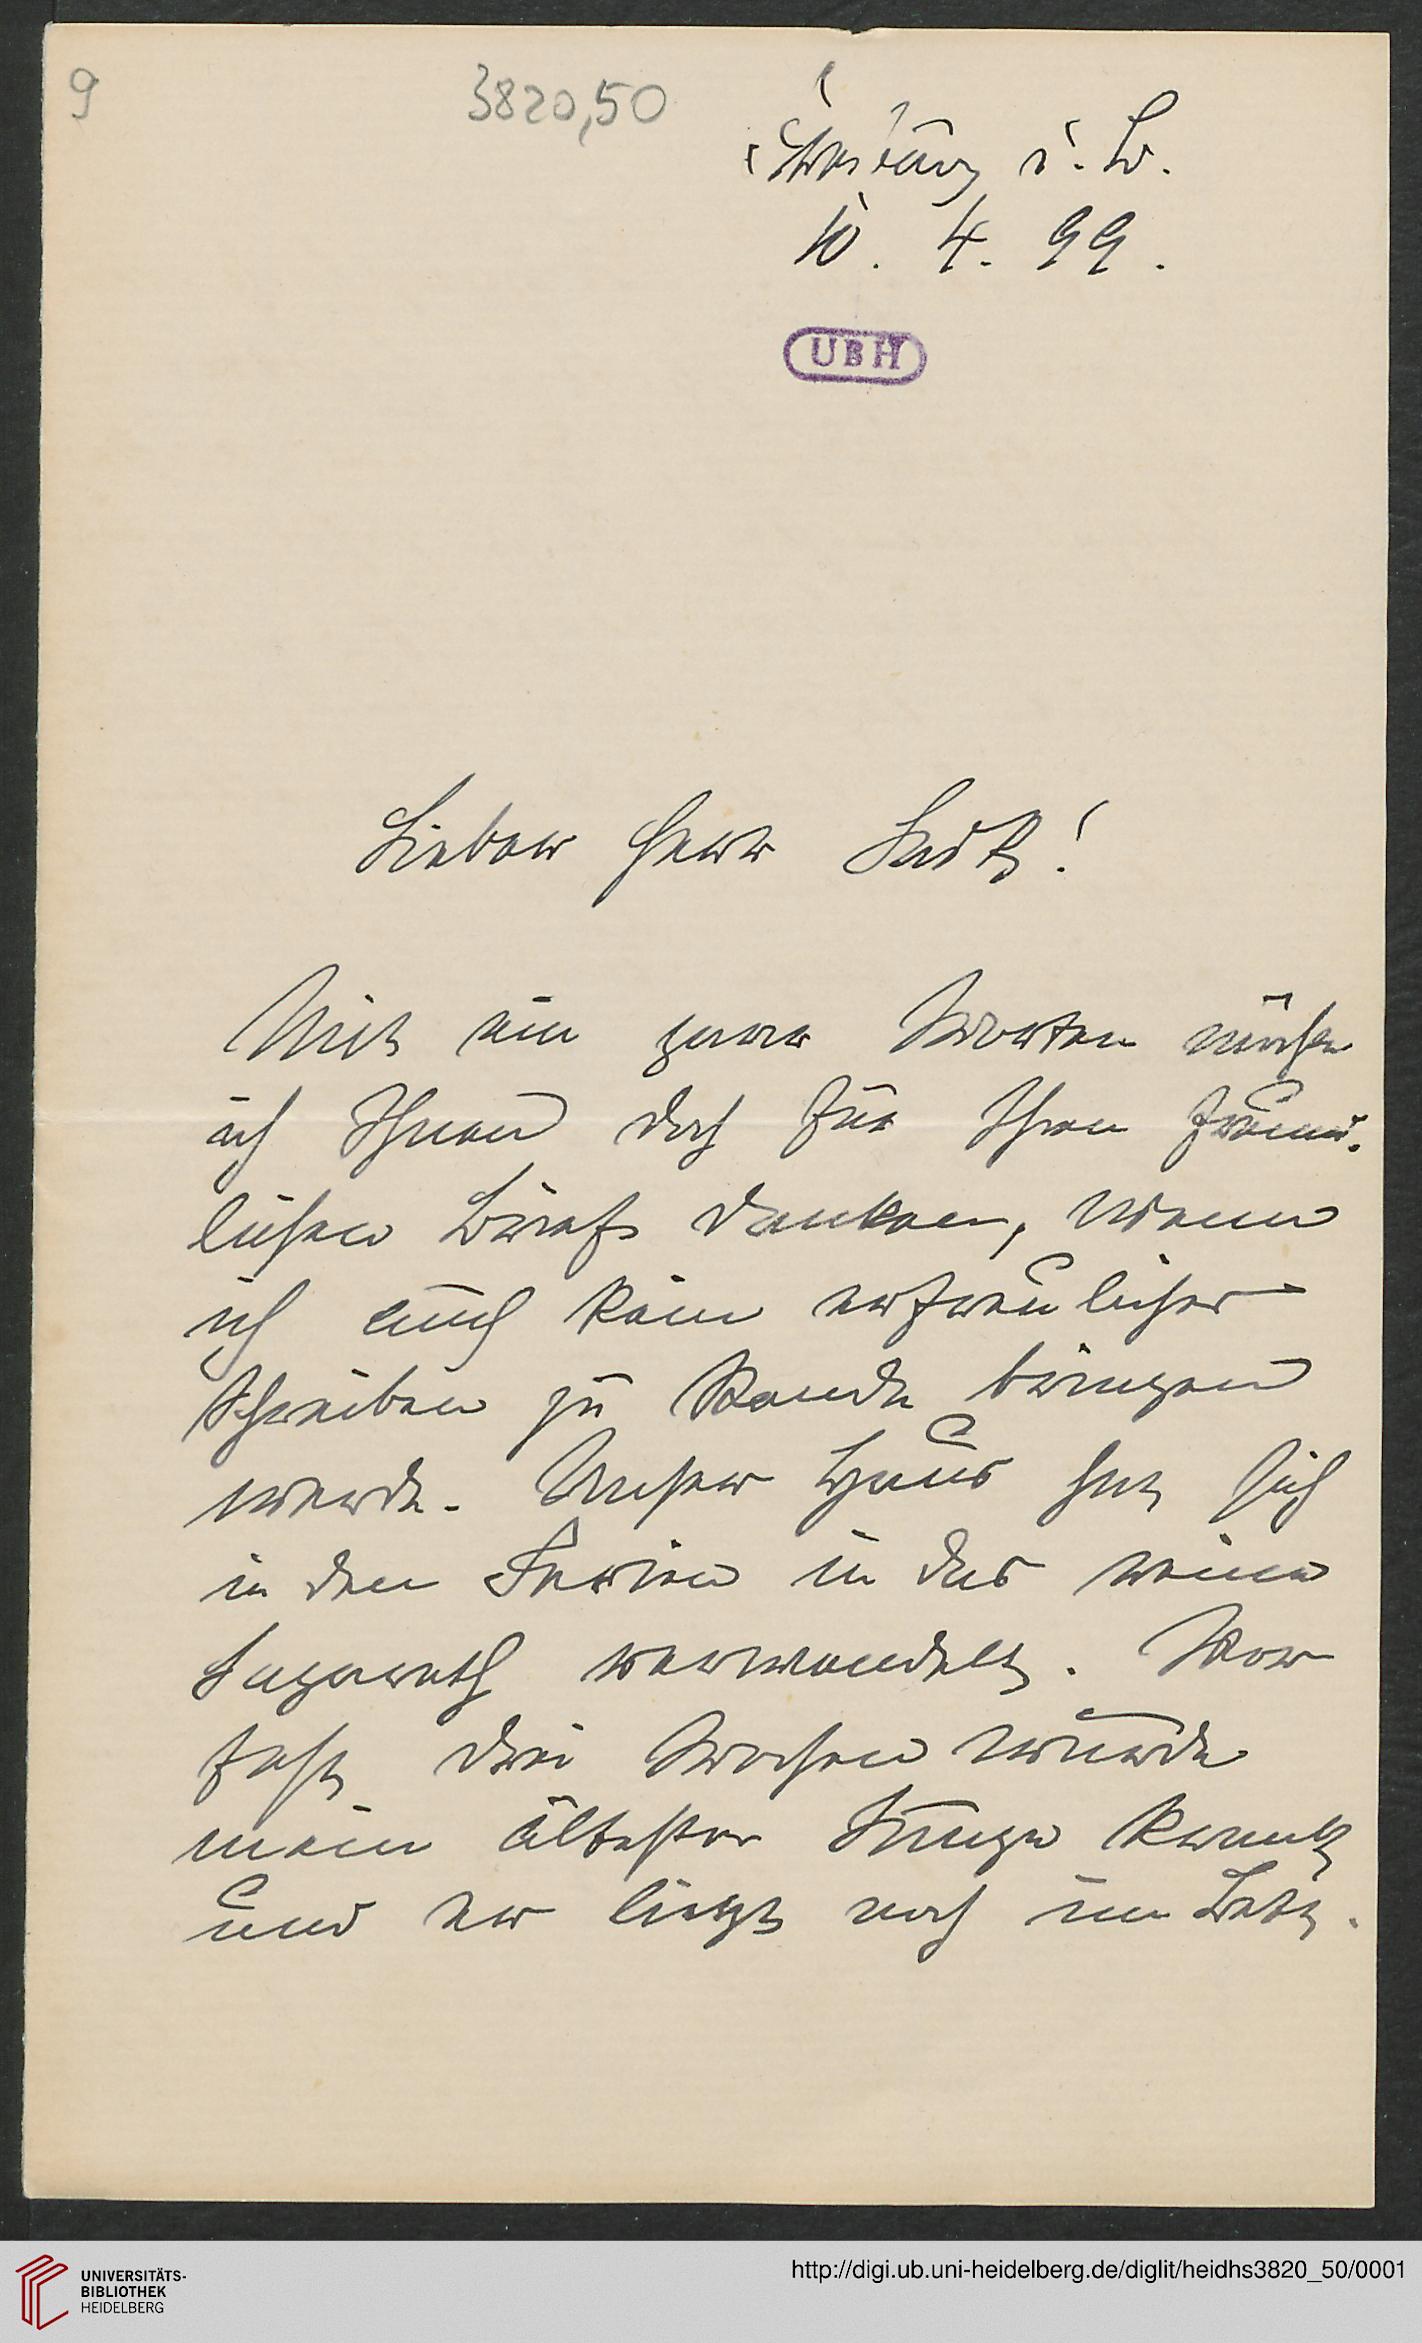 9
3820,50
Freiburg i. B.
10. 4. 99.
UBH
Lieber Herr
Mit ein paar Worten möchte
ich Ihnen doch für Ihren freund-
lichen Brief danken, wenn
ich auch kein erfreuliches
Schreiben zu Stande bringen
werde. Unser Haus hat sich
in den Ferien in das reine
Lazareth verwandelt. Vor
fast drei Wochen wurde
mein ältester Junge krank
und er liegt noch im Bett.
UNIVERSITÄTS-
BIBLIOTHEK
HEIDELBERG
http://digi.ub.uni-heidelberg.de/diglit/heidhs3820_50/0001